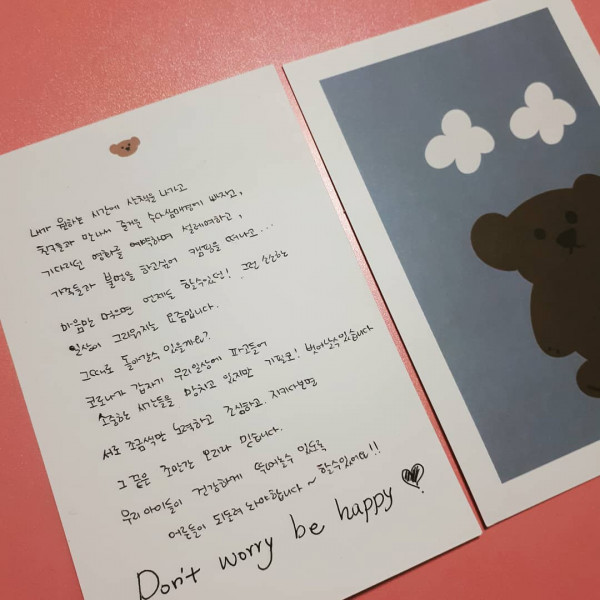 내가 원하는 시간에 산책을 나가고
친구들과 만나서 즐거운 수다삼매경에 빠지고,
기다리던 영화를 예매하며 설레여하고,
가족들과 불멍을 하고싶어 캠핑을 떠나고...
마음만 먹으면 언제든 할수있었던! 그런 소소한
일상이 그리워지는 요즘입니다.
그때로 돌아갈수 있을까요?
코로나가 갑자기 우리일상에 파고들어
소중한 시간들을 망치고 있지만 기필코! 벗어날수있습니다
서로 조금씩만 노력하고 조심하고. 지키다보면
그 끝은 조만간 오리라 믿습니다.
우리 아이들이 건강하게 뛰어놀수 있도록
어른들이 되돌려 놔야합니다~ 할수있어요!!
Don't worry be happy ♡!